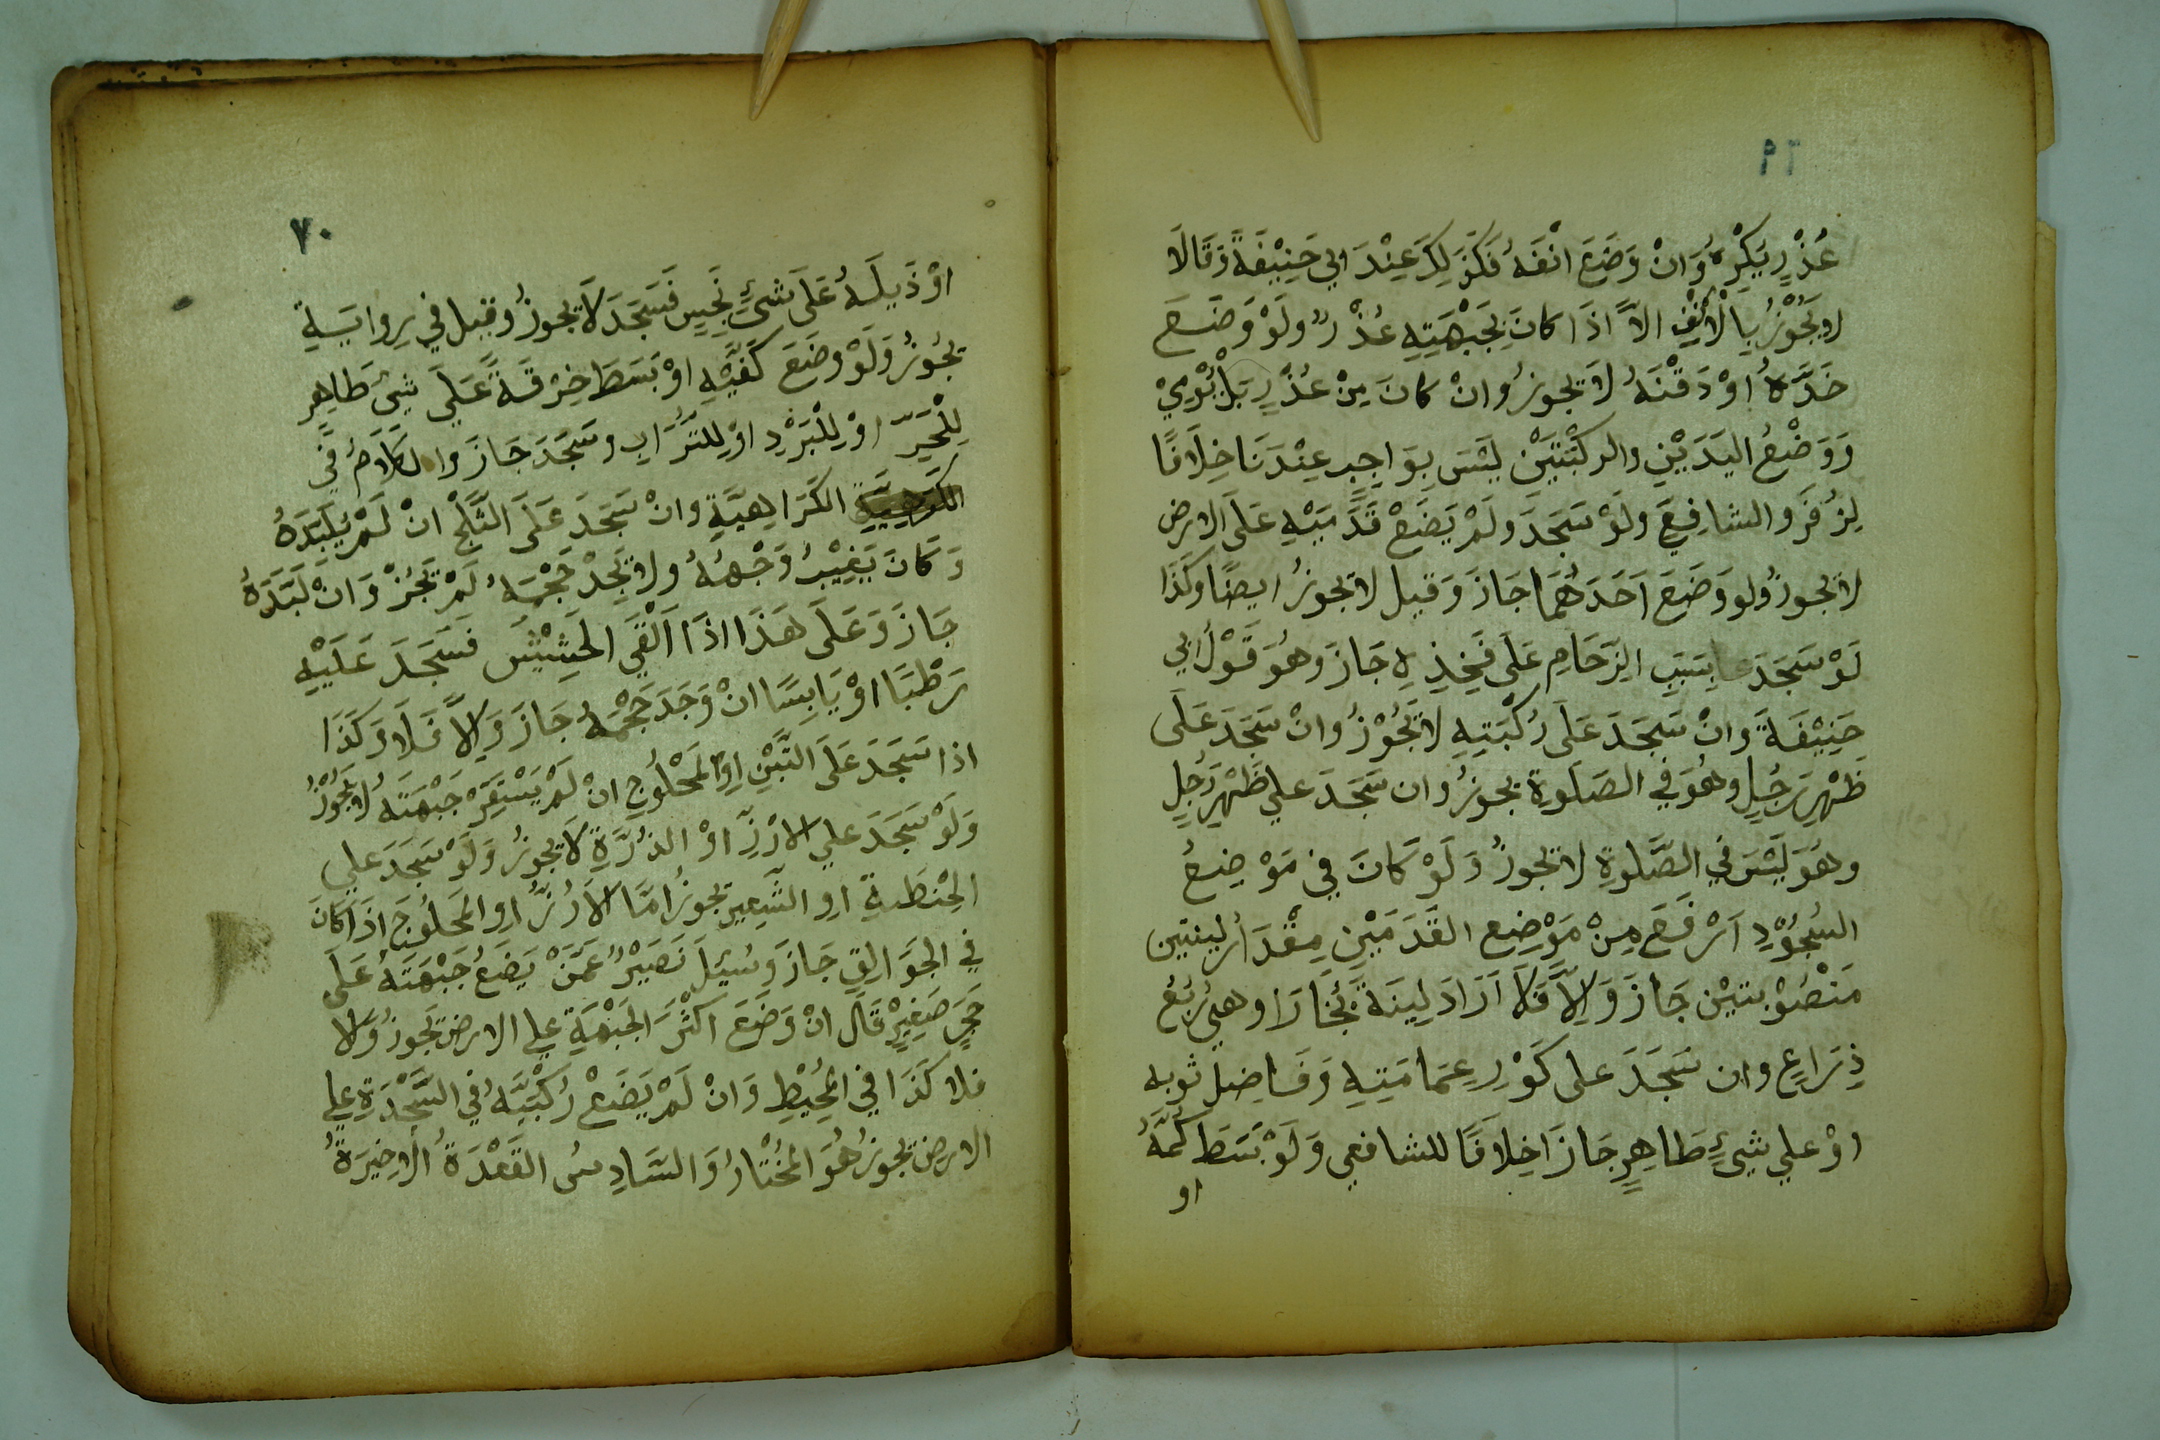 ٦٩
عُذْرٍ يَكْرَهُ وَانْ وَضَعَ انْفَهُ فَكَذَلِكَ عِنْدَ ابي حَنِيْفَةَ وَقَالَا
لا يَجُوْزُ بِالْاَنْفِ الاَّ اذَا كانَ بِجَبْهَتِهِ عُذْرٌ ولَوْ وَضَعَ
خَدَّهُ اوْ ذَقْنَهُ لَا يجوزُ وانْ كانَ مِنْ عُذْرٍ بَلْ يُوْمِيْ
وَوَضْعُ اليَدَيْنِ والركْبَتَيْنِ لَيْسَ بِوَاجِبٍ عِنْدَنَا خِلَافًا
لِزُفَرَ والشافِعِي ولَوْ سَجَدَ ولَمْ يَضَعْ قَدَمَيْهِ عَلَى الارض
لا يجوزُ ولو وَضَعَ اَحَدَهُمَا جَازَ وَقيل لا يجوزُ ايضًا وكَذَا
لَوْ سَجَدَ بِسَبَبِ الزحَامِ عَلَى فَخِذِهِ جَازَ وهُوَ قَوْلُ ابي
حَنِيْفَةَ وَانْ سَجَدَ عَلَى رُكْبَتِهِ لا يَجُوْزُ وانْ سَجَدَ عَلَى
ظَهْرِ رَجُلٍ وهُوَ في الصَلوةِ يجوزُ وان سَجَدَ علي ظَهْرِ رَجُلٍ
وهُوَ لَيْسَ في الصَّلوةِ لا يجوزُ وَلَوْ كَانَ في مَوْضِعُ
السُجُوْدِ اَرْفَعَ مِنْ مَوْضِعِ القَدَمَيْنِ مِقْدَارُ لبنتين
مَنْصُوْبتيْن جَازَ وَالاَّ فَلاَ اَرَادَ لِبنَةَ بُخَارَا وهيَ رُبُعُ
ذِرَاعٍ وان سَجَدَ على كَوْرِ عِمَامَتِهِ وَفَاضِل ثوبه
اوْ علي شيءٍ طَاهِرٍ جَازَ خِلافًا للشافعي وَلَوْ بَسَطَ كُمَّهُ
او
٧٠
اوْ ذَيلَهُ عَلَى شَيْءٍ نَجِسٍ فَسَجَدَ لاَ يجوزُ وقيل في رِوايَةٍ
يجُوزُ وَلَوْ وضَعَ كَفَّيْهِ اوْ بَسَطَ خِرْقَةً عَلَى شيْءٍ طَاهِرٍ
لِلْحَرِّ اوْ لِلْبَرْدِ اوْ لِلتُّرَابِ وسَجَدَ جَازَ والكَلَامُ في
الكَرَاهِيَّةِ وانْ سَجَدَ عَلَى الثَّلْجِ انْ لَمْ يُلَبِّدَهُ
وَكَانَ يَغِيْبُ وَجْهُهُ ولا يَجِدْ حَجْمَهُ لَمْ تَجُزْ وَانْ لَبَّدَهُ
جَازَ وَعَلَى هَذَا اذَا اَلْقَي الحَشِيْشَ فَسَجَدَ عَلَيْهِ
رَطْبًا اوْ يَابِسًا انْ وَجَدَ حَجْمَهُ جَازَ وَالاَّ فَلَا وَكَذَا
اذا سَجَدَ عَلَى التِّبْنِ اوِ المَحْلُوجِ انْ لَمْ يَسْتَقِرَّ جَبْهَتَهُ لا يَجُوْزُ
وَلَوْ سَجَدَ علي الارْزِّ اوْ الذُرَّةِ لَا يجوزُ وَلَوْ سَجَدَ علي
الحِنطَةِ اوِ الشَّعِيرِ يجوزُ امَّا الاَرُزُّ اوِ المَحلُوجَ اذَا كَانَ
في الجَوَالِقِ جَازَ وَسُئِلَ نَصَيْرٌ عَمَّنْ يَضَعُ جَبْهَتَهُ عَلَى
حَجَرٍ صَغِيْرٍ قَالَ انْ وَضَعَ اكْثَرَ الجَبْهَةِ علي الارضِ يجوزُ وَالا
فلا كَذَا في المُحِيْطِ وَانْ لَمْ يَضَعْ رُكْبَتَيْهُ في السَّجْدَةِ علي
الارضِ يجوزُ هُوَ المُخْتَارُ وَالسَّادِسُ القَعْدَةُ الاخِيرَةُ